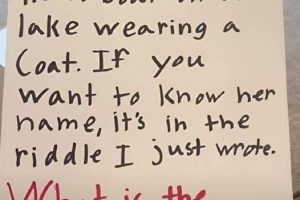 lake wearing a
Coat. If you
want to know her
name, it's in the
riddle I just wrote.
What is the